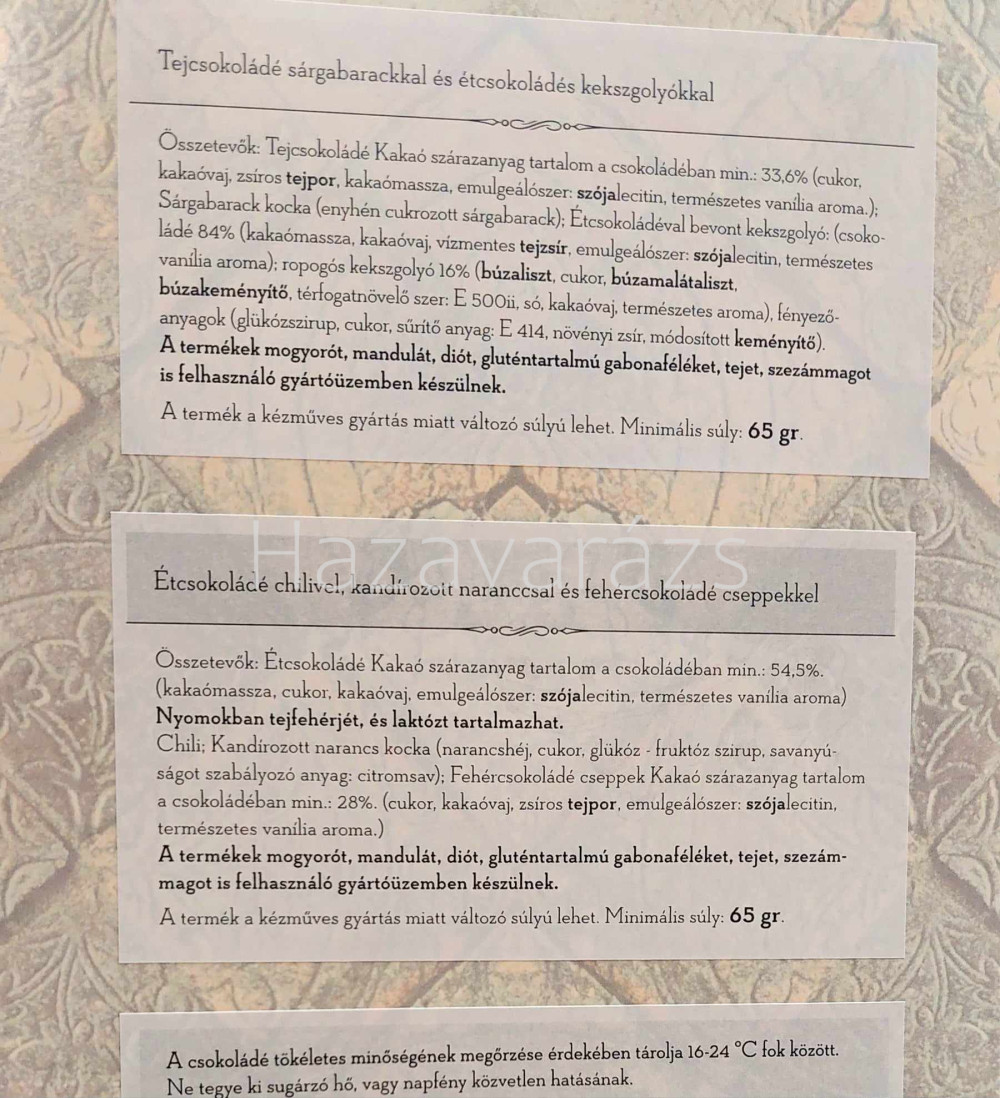 Tejcsokoládé sárgabarackkal és étcsokoládés kekszgolyókkal
Összetevők: Tejcsokoládé Kakaó szárazanyag tartalom a csokoládéban min.: 33,6% (cukor,
kakaóvaj, zsíros tejpor, kakaómassza, emulgeálószer: szójalecitin, természetes vanília aroma.);
Sárgabarack kocka (enyhén cukrozott sárgabarack); Étcsokoládéval bevont kekszgolyó: (csoko-
ládé 84% (kakaómassza, kakaóvaj, vízmentes tejzsír, emulgeálószer: szójalecitin, természetes
vanília aroma); ropogós kekszgolyó 16% (búzaliszt, cukor, búzamalátaliszt,
búzakeményítő, térfogatnövelő szer: E 500ii, só, kakaóvaj, természetes aroma), fényező-
anyagok (glükózszirup, cukor, sűrítő anyag: E 414, növényi zsír, módosított keményítő).
A termékek mogyorót, mandulát, diót, gluténtartalmú gabonaféléket, tejet, szezámmagot
is felhasználó gyártóüzemben készülnek.
A termék a kézműves gyártás miatt változó súlyú lehet. Minimális súly: 65 gr.
Hazavarázs
Étcsokoládé chilivel, kandírozott naranccsal és fehércsokoládé cseppekkel
Összetevők: Étcsokoládé Kakaó szárazanyag tartalom a csokoládéban min.: 54,5%.
(kakaómassza, cukor, kakaóvaj, emulgeálószer: szójalecitin, természetes vanília aroma)
Nyomokban tejfehérjét, és laktózt tartalmazhat.
Chili; Kandírozott narancs kocka (narancshéj, cukor, glükóz - fruktóz szirup, savanyú-
ságot szabályozó anyag: citromsav); Fehércsokoládé cseppek Kakaó szárazanyag tartalom
a csokoládéban min.: 28%. (cukor, kakaóvaj, zsíros tejpor, emulgeálószer: szójalecitin,
természetes vanília aroma.)
A termékek mogyorót, mandulát, diót, gluténtartalmú gabonaféléket, tejet, szezám-
magot is felhasználó gyártóüzemben készülnek.
A termék a kézműves gyártás miatt változó súlyú lehet. Minimális súly: 65 gr.
A csokoládé tökéletes minőségének megőrzése érdekében tárolja 16-24 °C fok között.
Ne tegye ki sugárzó hő, vagy napfény közvetlen hatásának.